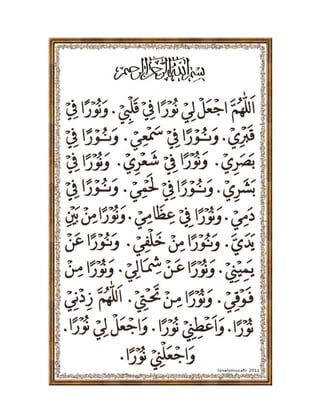 بِسْمِ اللهِ الرَّحْمٰنِ الرَّحِيْمِ
اَللّٰهُمَّ اجْعَلْ لِيْ نُوْرًا فِيْ قَلْبِيْ. وَنُوْرًا فِيْ
قَبْرِيْ. وَنُوْرًا فِيْ سَمْعِيْ. وَنُوْرًا فِيْ
بَصَرِيْ. وَنُوْرًا فِيْ شَعْرِيْ. وَنُوْرًا فِيْ
بَشَرِيْ. وَنُوْرًا فِيْ لَحْمِيْ. وَنُوْرًا فِيْ
دَمِيْ. وَنُوْرًا فِيْ عِظَامِيْ. وَنُوْرًا مِنْ بَيْنِ
يَدَيَّ. وَنُوْرًا مِنْ خَلْفِيْ. وَنُوْرًا عَنْ
يَمِيْنِيْ. وَنُوْرًا عَنْ شِمَالِيْ. وَنُوْرًا مِنْ
فَوْقِيْ. وَنُوْرًا مِنْ تَحْتِيْ. اَللّٰهُمَّ زِدْنِيْ
نُوْرًا. وَاَعْطِنِيْ نُوْرًا. وَاجْعَلْ لِيْ نُوْرًا.
وَاجْعَلْنِيْ نُوْرًا.
lonelymusafir 2011